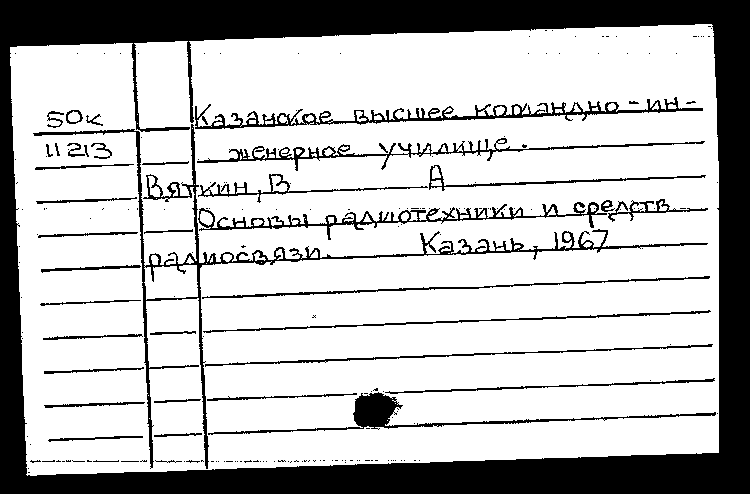 50к Казанское высшее командно-ин-
11213 женерное училище.
Вяткин, В А
Основы радиотехники и средств
радиосвязи. Казань, 1967